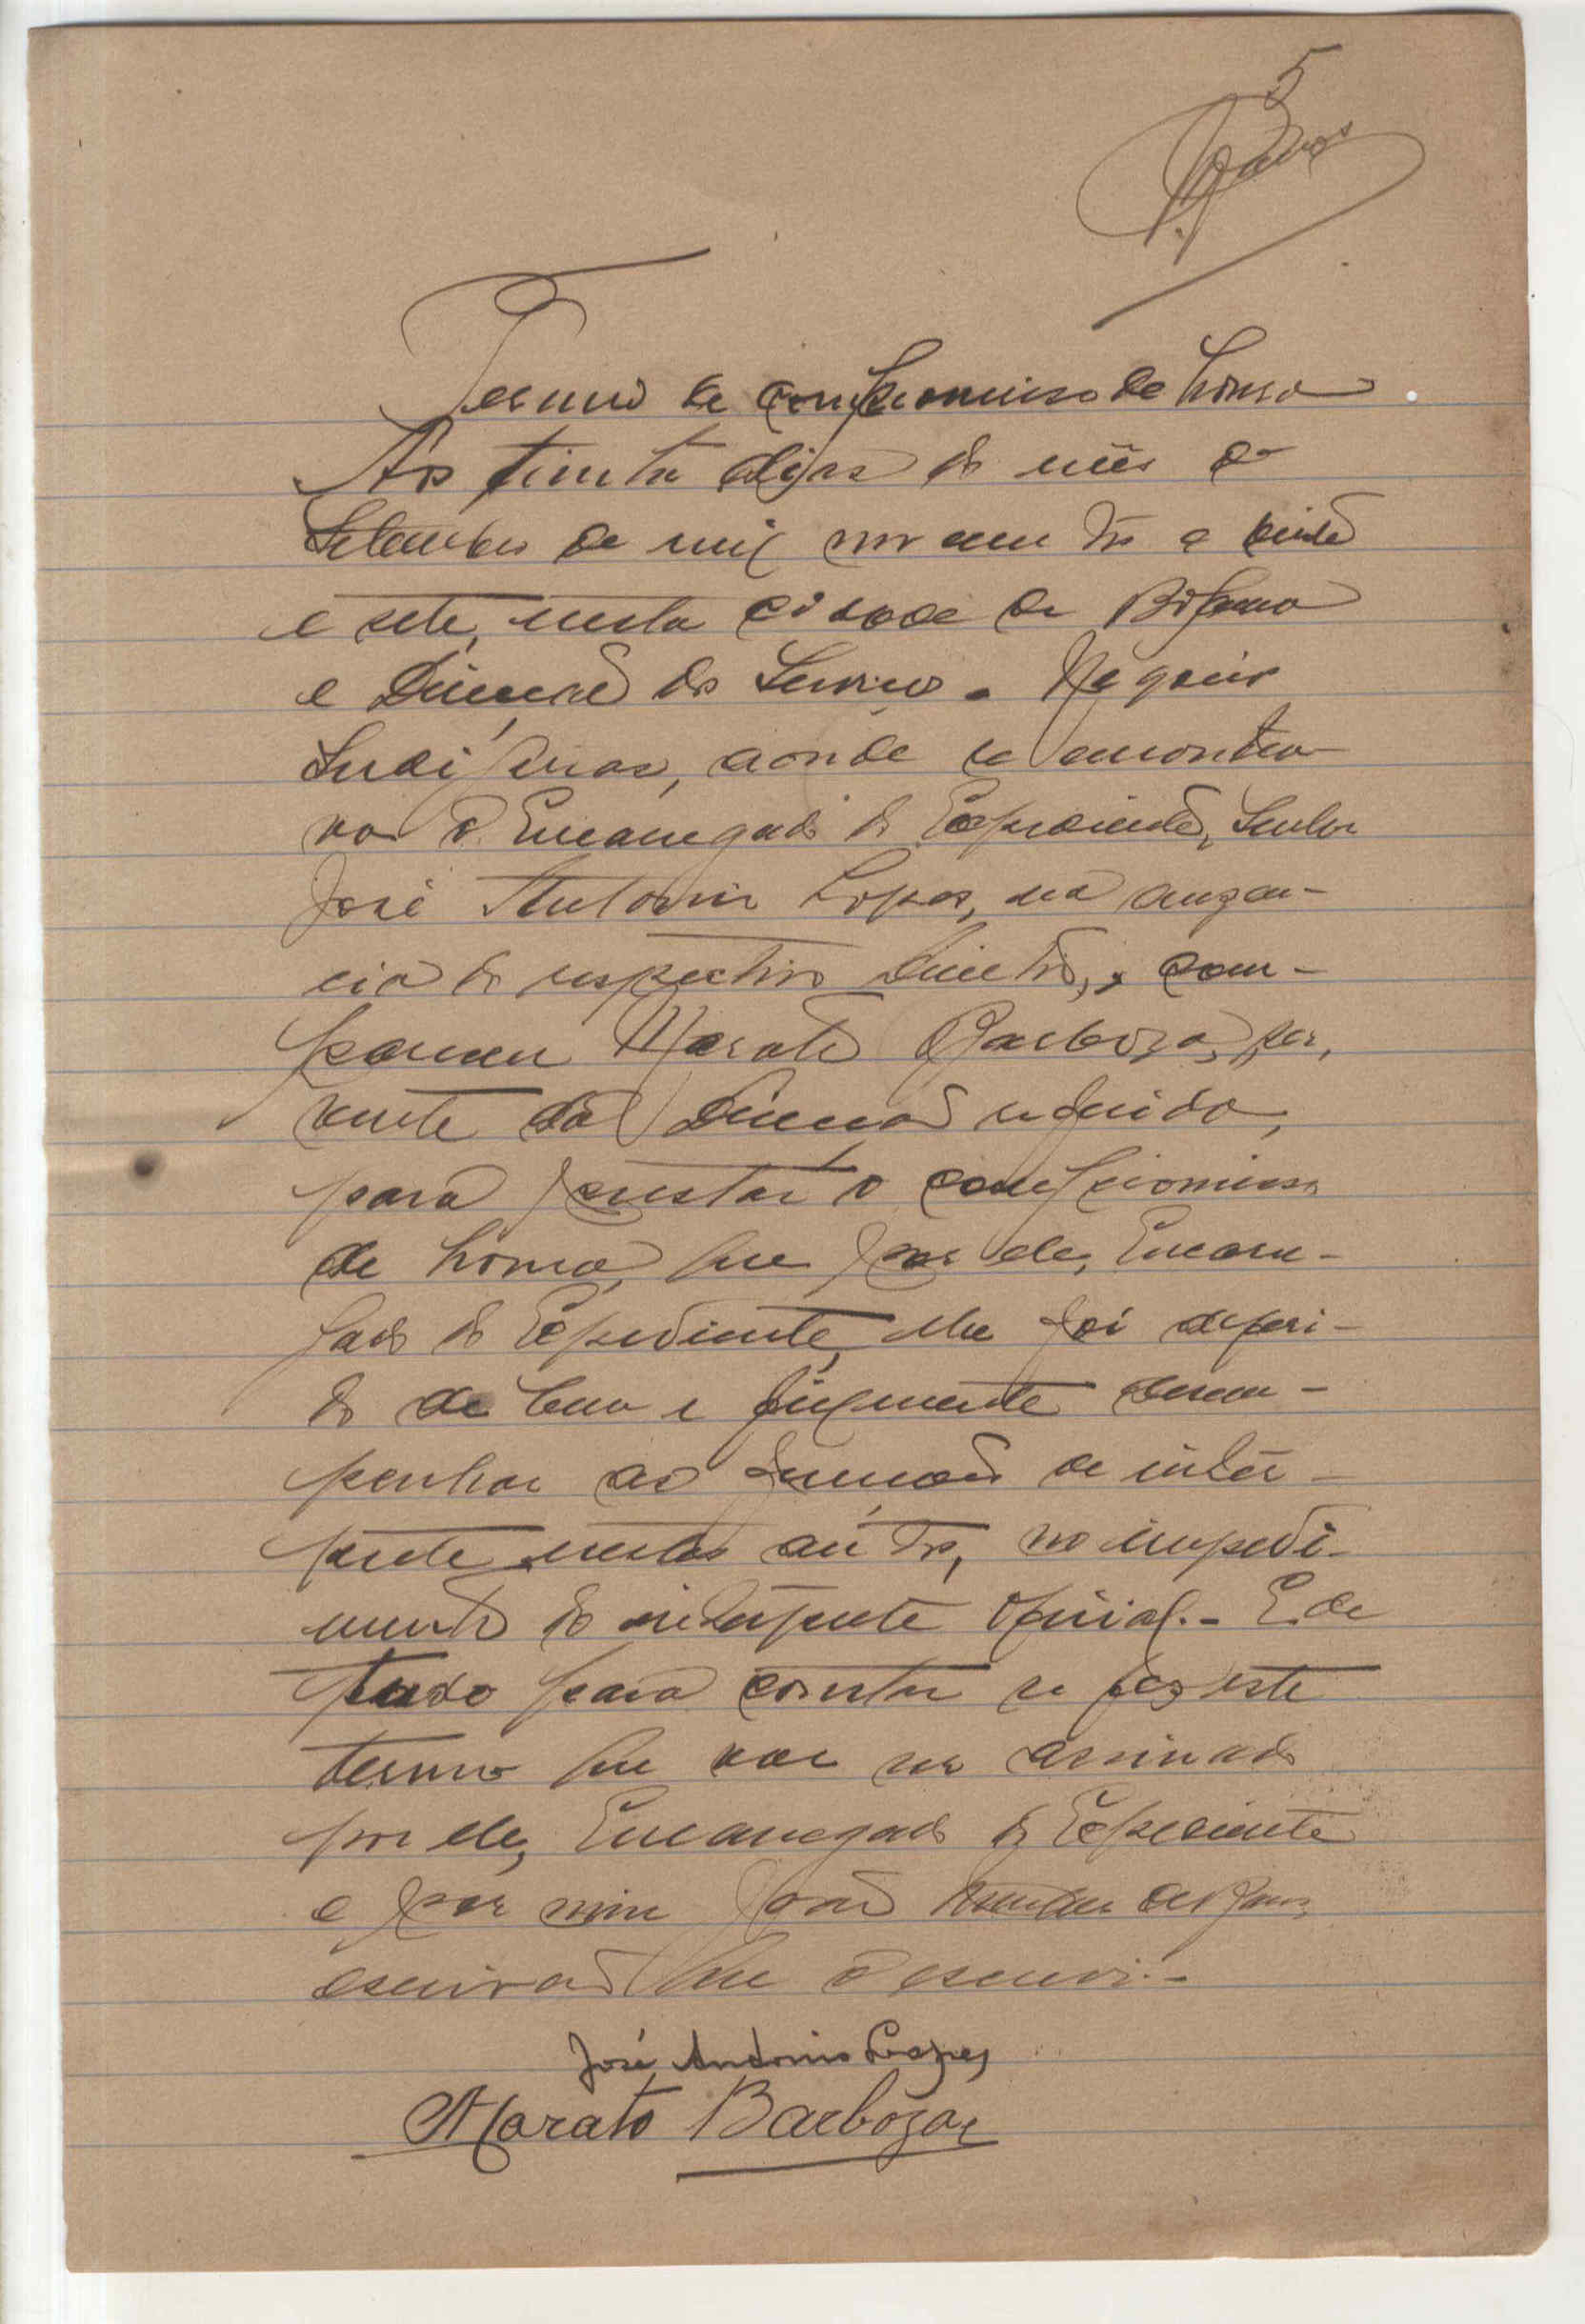 5
Ramos
Termo de compromisso de honra
Aos trinta dias do mês de
Setembro de mil nove centos e vinte
e sete, nesta cidade de Bolama
e Direcção dos Serviços e Negocios
Indigenas, aonde se encontra-
va o Encarregado do Expediente, Senhor
José Antonio Lopes, na auzen-
cia do respectivo Director, com-
pareceu Marato Barboza, ser-
vente da Direcção referida,
para prestar o compromisso
de honra, que por ele, Encarre-
gado do Expediente, lhe foi deferi-
do de bem e fielmente desem-
penhar as funções de intér-
prete nestes autos, no impedi-
mento do intérprete oficial.- E de
tudo para constar se fez este
termo que vae ser assinado
por ele, Encarregado do Expediente
e por mim João
escrivão que o escrevi.-
José Antonio Lopes
Marato Barboza